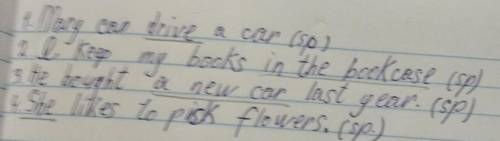 1. Mary can drive a car (sp)
2. I keep my books in the bookcase (sp)
3. He bought a new car last year. (sp)
4. She likes to pick flowers. (sp.)